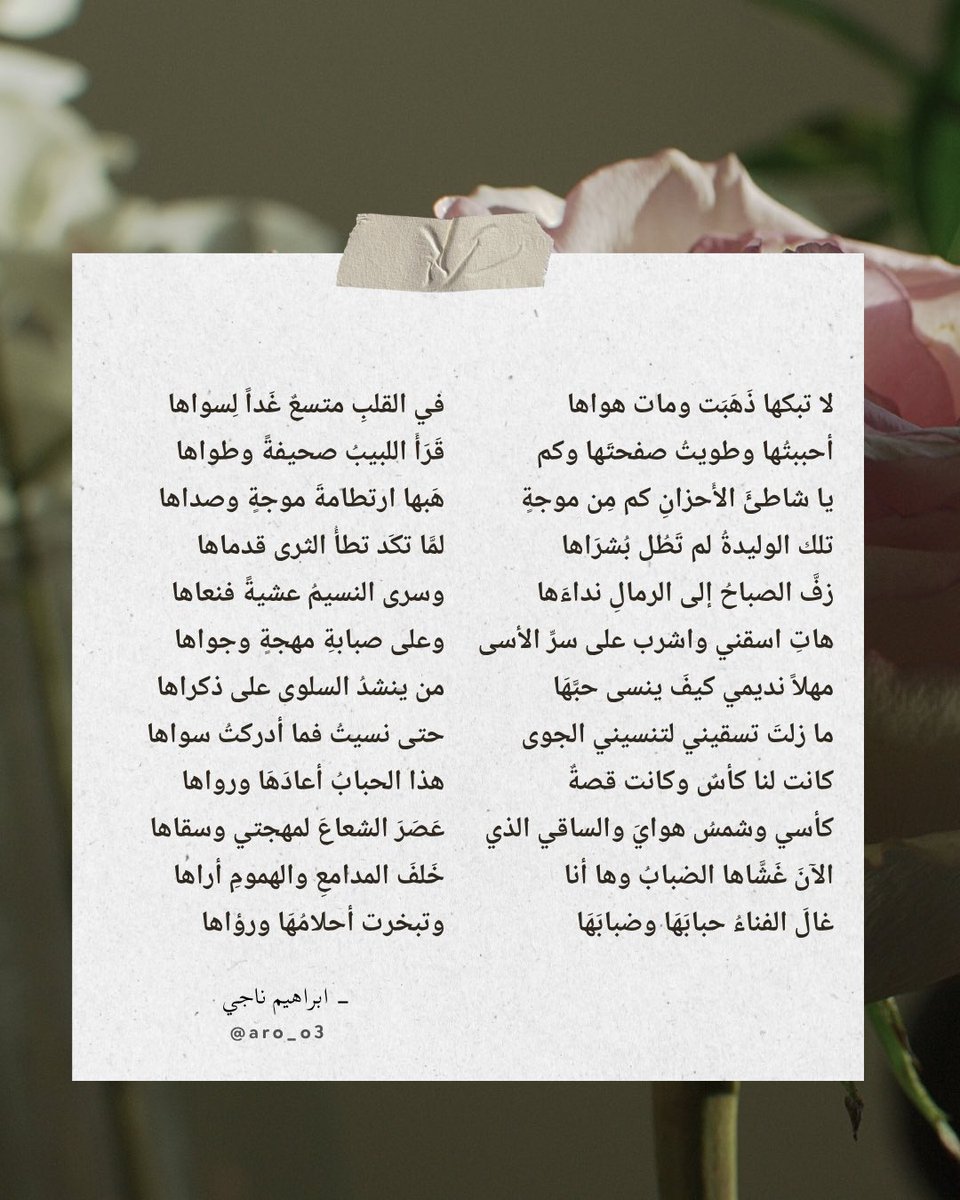 لا تبكها ذَهَبَت ومات هواها في القلبِ متسعٌ غَداً لِسواها
أحببتُها وطويتُ صفحتَها وكم قَرَأَ اللبيبُ صحيفةً وطواها
يا شاطئَ الأحزانِ كم مِن موجةٍ هَبها ارتطامةَ موجةٍ وصداها
تلك الوليدةُ لم تَطُل بُشرَاها لمَّا تكَد تطأُ الثرى قدماها
زفَّ الصباحُ إلى الرمالِ نداءَها وسرى النسيمُ عشيةً فنعاها
هاتِ اسقني واشرب على سرِّ الأسى وعلى صبابةِ مهجةٍ وجواها
مهلاً نديمي كيفَ ينسى حبَّهَا من ينشدُ السلوى على ذكراها
ما زلتَ تسقيني لتنسيني الجوى حتى نسيتُ فما أدركتُ سواها
كانت لنا كأسٌ وكانت قصةٌ هذا الحبابُ أعادَهَا ورواها
كأسي وشمسُ هوايَ والساقي الذي عَصَرَ الشعاعَ لمهجتي وسقاها
الآنَ غَشَّاها الضبابُ وها أنا خَلفَ المدامعِ والهمومِ أراها
غالَ الفناءُ حبابَهَا وضبابَهَا وتبخرت أحلامُهَا ورؤاها
ـ ابراهيم ناجي
@aro_o3